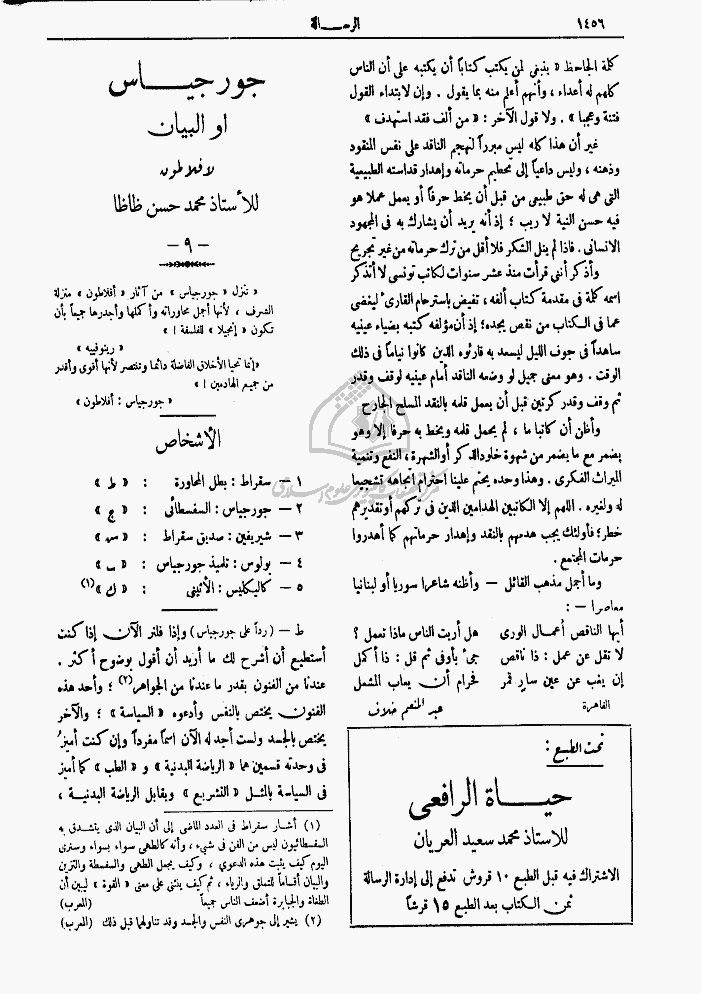 ١٤٥٦
الرسالة
كلمة الجاحظ « ينبغى لمن يكتب كتاباً أن يكتبه على أن الناس
كلهم له أعداء ، وأنهم أعلم منه بما يقول . وإن لابتداء القول
فتنة وعجبا » . ولا قول الآخر : « من ألف فقد استهدف »
غير أن هذا كله ليس مبرراً لتهجم الناقد على نفس المنقود
وذهنه ، وليس داعياً إلى تحطيم حرماته وإهدار قداسته الطبيعية
التى هى له حق طبيعى من قبل أن يخط حرفاً أو يعمل عملا هو
فيه حسن النية لا ريب ؛ إذ أنه يريد أن يشارك به فى المجهود
الانسانى . فاذا لم ينل الشكر فلا أقل من ترك حرماته من غير تجريح
وأذكر أننى قرأت منذ عشر سنوات لكاتب تونسى لا أتذكر
اسمه كلمة فى مقدمة كتاب ألفه ، تفيض باسترحام القارىء ليغضى
عما فى الكتاب من نقص يجده ؛ إذ أن مؤلفه كتبه بضياء عينيه
ساهداً فى جوف الليل ليسعد به قارئوه الذين كانوا نياماً فى ذلك
الوقت . وهو معنى جميل لو وضعه الناقد أمام عينيه لوقف وقدر
ثم وقف وقدر كرتين قبل أن يعمل قلمه بالنقد المسلح الجارح
وأظن أن كاتبا ما ، لم يحمل قلمه ويخط به حرفا إلا وهو
يضمر مع ما يضمر من شهوة خلود الذكر أو الشهرة ، النفع وتنمية
الميراث الفكرى . وهذا وحده يحتم علينا احترام اتجاهه تشجيعا
له ولغيره . اللهم إلا الكاتبين الهدامين الذين فى تركهم أو تقديرهم
خطر ؛ فأولئك يجب هدمهم بالنقد وإهدار حرماتهم كما أهدروا
حرمات المجتمع .
وما أجمل مذهب القائل — وأظنه شاعرا سوريا أو لبنانيا
معاصرا — :
أيها الناقص أعمال الورى هل أريت الناس ماذا تعمل ؟
لا تقل عن عمل : ذا ناقص جىء بأوفى ثم قل : ذا أكمل
إن يغب عن عين سارٍ قمر فحرام أن يعاب المشعل
القاهرة عبد المنعم خلاف
تحت الطبع :
حياة الرافعى
للاستاذ محمد سعيد العريان
الاشتراك فيه قبل الطبع ١٠ قروش تدفع إلى إدارة الرسالة
ثمن الكتاب بعد الطبع ١٥ قرشاً
جورجياس
او البيان
لافلاطون
للأستاذ محمد حسن ظاظا
— ٩ —
« تنزل « جورجياس » من آثار « أفلاطون » منزلة
الشرف ، لأنها أجمل محاوراته وأكملها وأجدرها جميعاً بأن
تكون « إنجيلا » للفلسفة ! »
« رينوفييه »
« إنما تحيا الأخلاق الفاضلة دائما وتنتصر لأنها أقوى وأقدر
من جميع الهادمين ! »
« جورجياس : أفلاطون »
الأشخاص
١ — سقراط : بطل المحاورة : « ط »
٢ — جورجياس : السفسطائى : « ج »
٣ — شيريفين : صديق سقراط : « س »
٤ — بولوس : تلميذ جورجياس : « ب »
٥ — كاليكليس : الأثينى : « ك » (١)
ط — ( رداً على جورجياس ) وإذا فلتر الآن إذا كنت
أستطيع أن أشرح لك ما أريد أن أقول بوضوح أكثر .
عندنا من الفنون بقدر ما عندنا من الجواهر (٢) ؛ وأحد هذه
الفنون يختص بالنفس وأدعوه « السياسة » ؛ والآخر
يختص بالجسد ولست أجد له الآن اسماً مفرداً وإن كنت أميزُ
فى وحدته قسمين هما « الرياضة البدنية » و « الطب » كما أميز
فى السياسة بالمثل « التشريع » ويقابل الرياضة البدنية ،
(١) أشار سقراط فى العدد الماضى إلى أن البيان الذى يتشدق به
السفسطائيون ليس من الفن فى شىء ، وأنه كالطهى سواء بسواء وسنرى
اليوم كيف يثبت هذه الدعوى ، وكيف يجعل الطهى والسفسطة والتزين
والبيان أقساماً للتملق والرياء ، ثم كيف ينثنى على معنى « القوة » ليبين أن
الطغاة والجبابرة أضعف الناس جميعاً (المعرب)
(٢) يشير إلى جوهرى النفس والجسد وقد تناولهما قبل ذلك (المعرب)